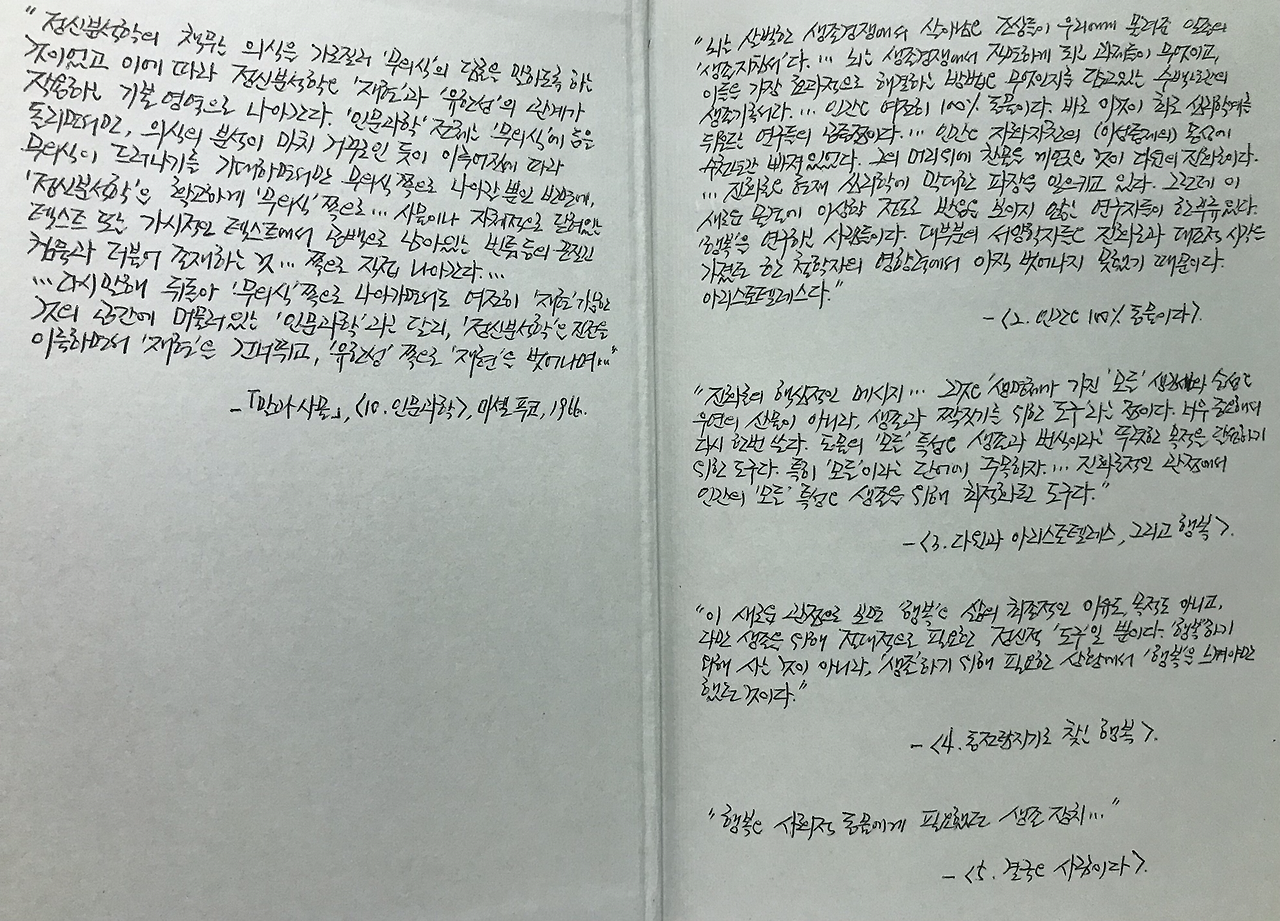 "정신분석학의 책무는 의식을 가로질러 '무의식'의 담론을 말하도록 하는
것이었고 이에 따라 정신분석학은 '재현'과 '유한성'의 관계가
작용하는 기본 영역으로 나아간다. '인문과학' 전체는 '무의식'에 등을
돌리면서만, 의식의 분석이 마치 거꾸로인 듯이 이루어짐에 따라
무의식이 드러나기를 기대하면서만 무의식 쪽으로 나아갈 뿐인 반면에,
'정신분석학'은 확고하게 '무의식' 쪽으로… 사물이나 자체적으로 닫혀있는
텍스트 또는 가시적인 텍스트에서 공백으로 남아있는 빈틈 등의
침묵과 더불어 존재하는 것… 쪽으로 직접 나아간다.…
… 다시 말해 뒤돌아 '무의식' 쪽으로 나아가면서도 여전히 '재현' 가능한
것의 공간에 머물러있는 '인문과학'과는 달리, '정신분석학'은 전진을
이룩하면서 '재현'을 건너뛰고, '유한성' 쪽으로 '재현'을 벗어나며…"
-「말과 사물」, <10. 인문과학>, 미셸 푸코, 1966.
"뇌는 살벌한 생존경쟁에서 살아남은 조상들이 우리에게 물려준 일종의
'생존지침서'다. … 뇌는 생존경쟁에서 직면하게 되는 과제들이 무엇이고,
이들을 가장 효과적으로 해결하는 방법은 무엇인지를 담고있는 수백만년간의
생존기록서다. … 인간은 여전히 100% 동물이다. 바로 이것이 최근 심리학계를
뒤흔드는 연구들의 공통점이다. … 인간은 자화자찬의 (이성들레의) 늪에
수천년간 빠져있었다. 그의 머리위에 찬물을 끼얹은 것이 다윈의 진화론이다.
… 진화론은 현재 심리학에 막대한 파장을 일으키고 있다. 그런데 이
새로운 물결에 이상할 정도로 반응을 보이지 않는 연구자들이 한부류 있다.
'행복'을 연구하는 사람들이다. 대부분의 서양학자들은 진화론과 대조적 시각을
가졌던 한 철학자의 영향력에서 아직 벗어나지 못했기 때문이다.
아리스토텔레스다."
- <2. 인간은 100% 동물이다>.
"진화론의 핵심적인 메시지… 그것은 '생명체가 가진 '모든' 생김새와 습성은
우연의 산물이 아니라, 생존과 짝짓기를 위한 도구'라는 점이다. 너무 중요해서
다시 한번 쓴다. 동물의 '모든' 특성은 생존과 번식이라는 뚜렷한 목적을 달성하기
위한 도구다. 특히 '모든'이라는 단어에 주목하자. … 진화론적인 관점에서
인간의 '모든' 특성은 생존을 위해 최적화된 도구다."
- <3. 다윈과 아리스토텔레스, 그리고 행복>.
"이 새로운 관점으로 보면 '행복'은 삶의 최종적인 이유도, 목적도 아니고,
다만 생존을 위해 절대적으로 필요한 정신적 '도구'일 뿐이다. '행복'하기
위해 사는 것이 아니라, '생존'하기 위해 필요한 상황에서 '행복'을 느껴야만
했던 것이다."
- <4. 동전탐지기로 찾는 행복>.
"행복은 사회적 동물에게 필요했던 생존 장치…"
- <5. 결국은 사람이다>.